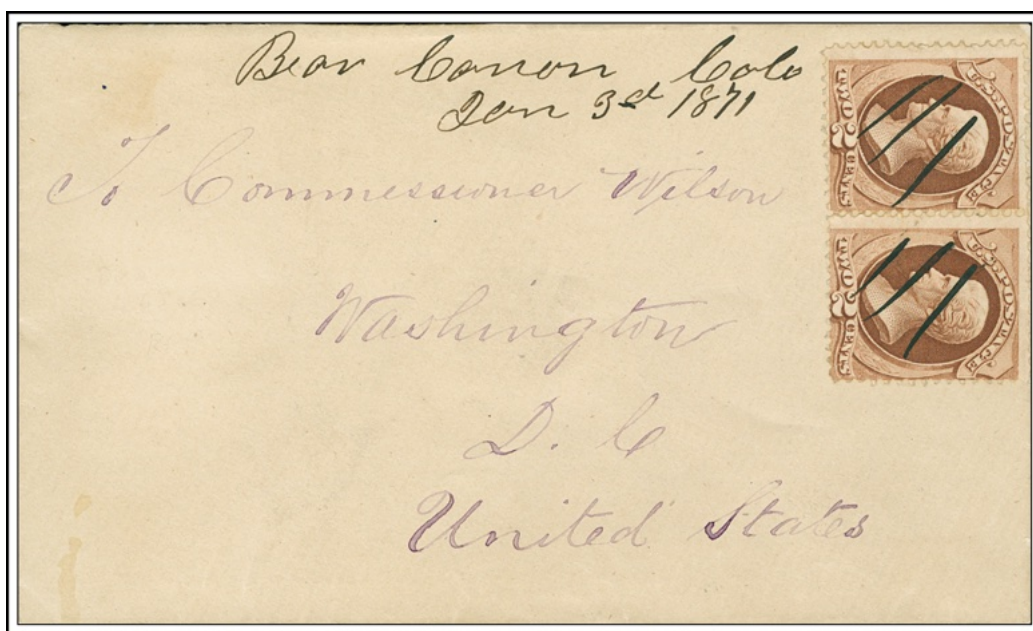 Bear Canon Colo
Jan 3d 1871
To Commissioner Wilson
Washington
D. C
United States
U.S. POSTAGE
TWO 2 CENTS
U.S. POSTAGE
TWO 2 CENTS